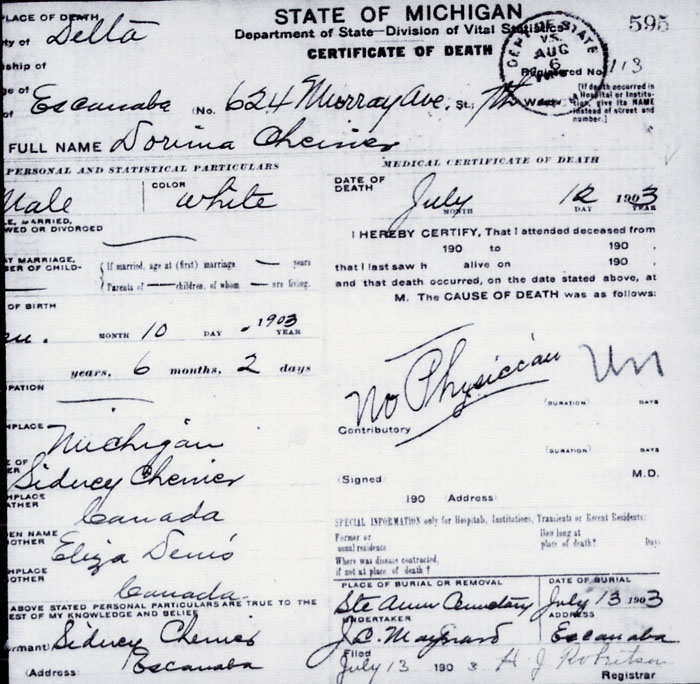 PLACE OF DEATH
STATE OF MICHIGAN
595
ty of Delta
Department of State—Division of Vital Statistics
DEPT. OF STATE
V.S.
AUG
6
CERTIFICATE OF DEATH
ship of
Registered No. 113
ge of
of Escanaba (No. 624 Murray Ave. St.; 7th Ward)
[If death occurred in
Hospital or Institu-
tion, give its NAME
instead of street and
number.]
FULL NAME Dorima Chenier
PERSONAL AND STATISTICAL PARTICULARS
Male
COLOR white
LE, MARRIED,
WED OR DIVORCED
AT MARRIAGE,
BER OF CHILD-
If married, age at (first) marriage — years
Parents of — children, of whom — are living.
OF BIRTH
MONTH 10 DAY 1903 YEAR
years, 6 months, 2 days
PATION
HPLACE
Michigan
E OF
ER
Sidney Chenier
HPLACE
ATHER
Canada
DEN NAME
OTHER
Eliza Denis
HPLACE
OTHER
Canada
ABOVE STATED PERSONAL PARTICULARS ARE TRUE TO THE
EST OF MY KNOWLEDGE AND BELIEF
rmant) Sidney Chenier
(Address) Escanaba
MEDICAL CERTIFICATE OF DEATH
DATE OF
DEATH
July 12 1903
MONTH DAY YEAR
I HEREBY CERTIFY, That I attended deceased from
190 to 190 ,
that I last saw h alive on 190 ,
and that death occurred, on the date stated above, at
M. The CAUSE OF DEATH was as follows:
No Physician
(DURATION) DAYS
Contributory
(DURATION) DAYS
(Signed) M.D.
190 (Address)
SPECIAL INFORMATION only for Hospitals, Institutions, Transients or Recent Residents:
Former or
usual residence
How long at
place of death? Days
Where was disease contracted,
if not at place of death?
PLACE OF BURIAL OR REMOVAL
DATE OF BURIAL
Ste Ann Cemetery
July 13 1903
UNDERTAKER
ADDRESS
J.C. Maynard
Escanaba
Filed
July 13 190 3 H J Robitson
Registrar